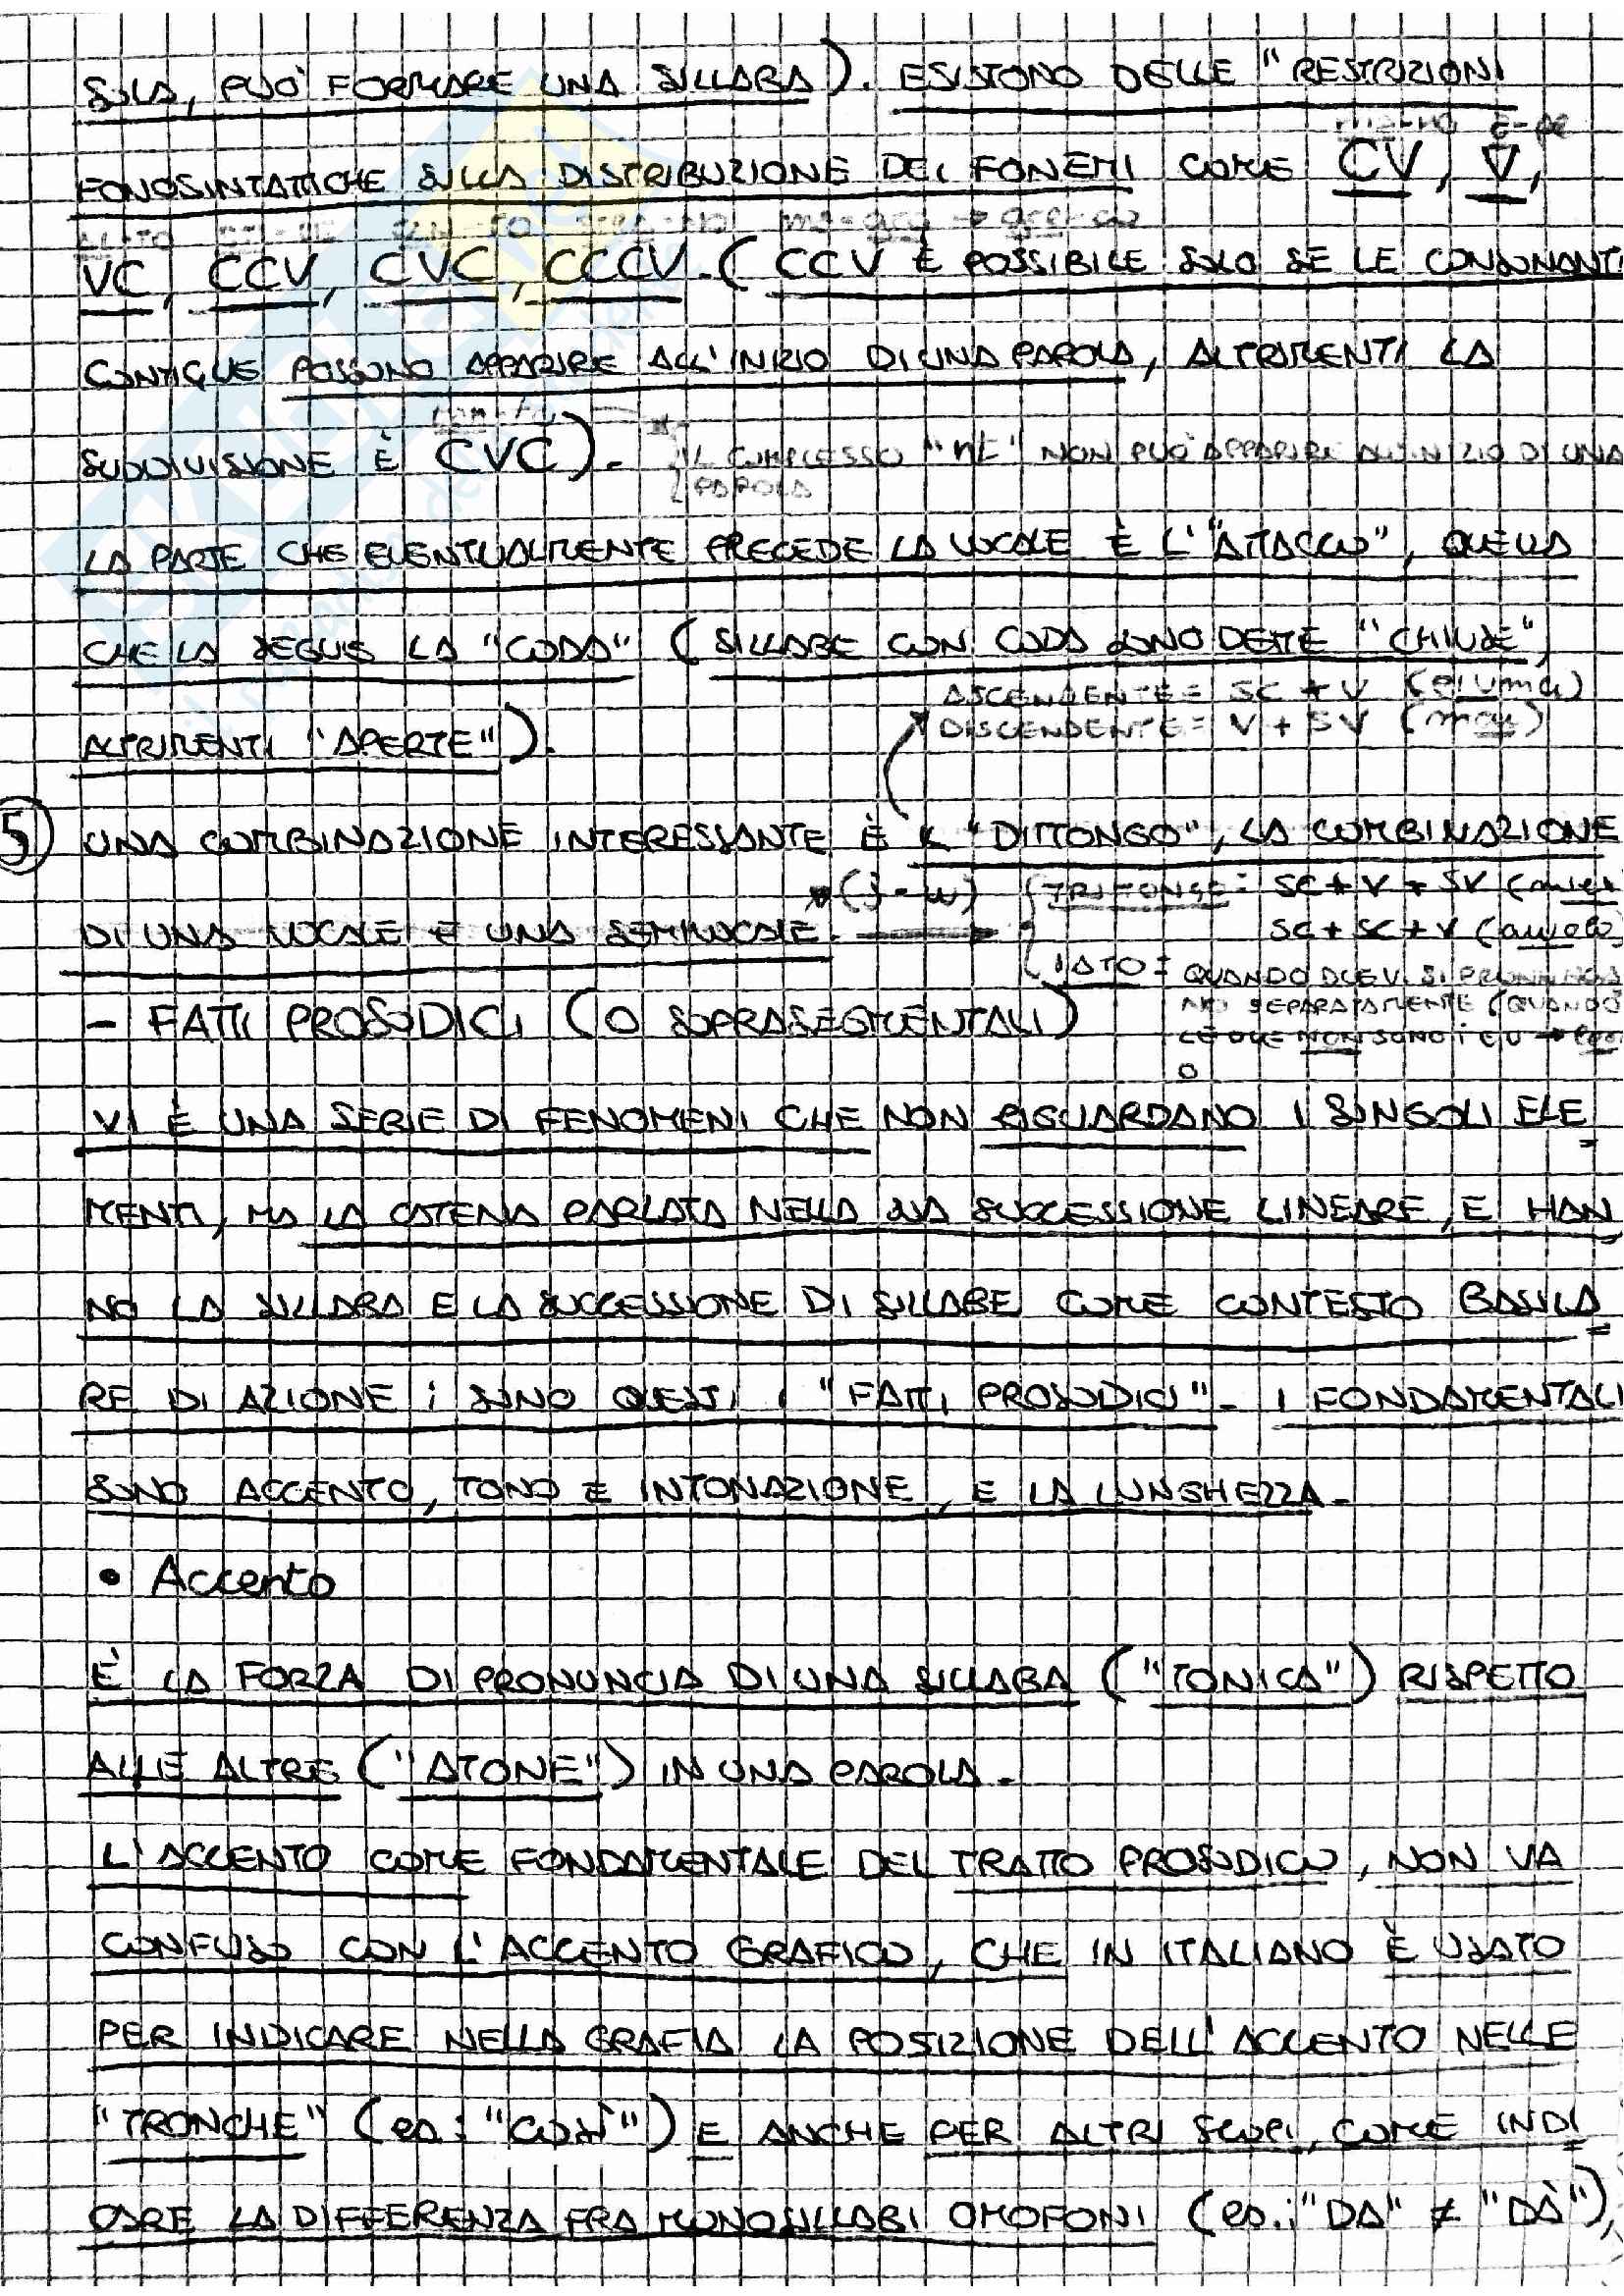 SOLA, PUÒ FORMARE UNA SILLABA). ESISTONO DELLE "RESTRIZIONI
FONOSINTATTICHE SULLA DISTRIBUZIONE DEI FONEMI COME CV, V,
VC, CCV, CVC, CCCV. (CCV È POSSIBILE SOLO SE LE CONSONANTI
CONTIGUE POSSONO APPARIRE ALL'INIZIO DI UNA PAROLA, ALTRIMENTI LA
SUDDIVISIONE È CVC).
IL COMPLESSO "nt" NON PUÒ APPARIRE ALL'INIZIO DI UNA
PAROLA
LA PARTE CHE EVENTUALMENTE PRECEDE LA VOCALE È L'"ATTACCO", QUELLA
CHE LA SEGUE LA "CODA" (SILLABE CON CODA SONO DETTE "CHIUSE",
ALTRIMENTI "APERTE").
ASCENDENTE = SC + V (piuma)
DISCENDENTE = V + SV (mai)
5) UNA COMBINAZIONE INTERESSANTE È IL "DITTONGO", LA COMBINAZIONE
DI UNA VOCALE E UNA SEMIVOCALE.
(j-w)
TRITTONGO: SC + V + SV (miei
SC + SC + V (aiuola)
IATO = QUANDO DUE V. SI PRONUNCIA
NO SEPARATAMENTE (QUANDO
LE DUE NON SONO i E U →
O
- FATTI PROSODICI (O SOPRASEGMENTALI)
VI È UNA SERIE DI FENOMENI CHE NON RIGUARDANO I SINGOLI ELE
MENTI, MA LA CATENA PARLATA NELLA SUA SUCCESSIONE LINEARE, E HAN
NO LA SILLABA E LA SUCCESSIONE DI SILLABE COME CONTESTO BASILA
RE DI AZIONE; SONO QUESTI I "FATTI PROSODICI". I FONDAMENTALI
SONO ACCENTO, TONO E INTONAZIONE, E LA LUNGHEZZA.
• Accento
È LA FORZA DI PRONUNCIA DI UNA SILLABA ("TONICA") RISPETTO
ALLE ALTRE ("ATONE") IN UNA PAROLA.
L'ACCENTO COME FONDAMENTALE DEL TRATTO PROSODICO, NON VA
CONFUSO CON L'ACCENTO GRAFICO, CHE IN ITALIANO È USATO
PER INDICARE NELLA GRAFIA LA POSIZIONE DELL'ACCENTO NELLE
"TRONCHE" (es: "così") E ANCHE PER ALTRI SCOPI, COME INDI
CARE LA DIFFERENZA FRA MONOSILLABI OMOFONI (es.: "DA" ≠ "DÀ"),